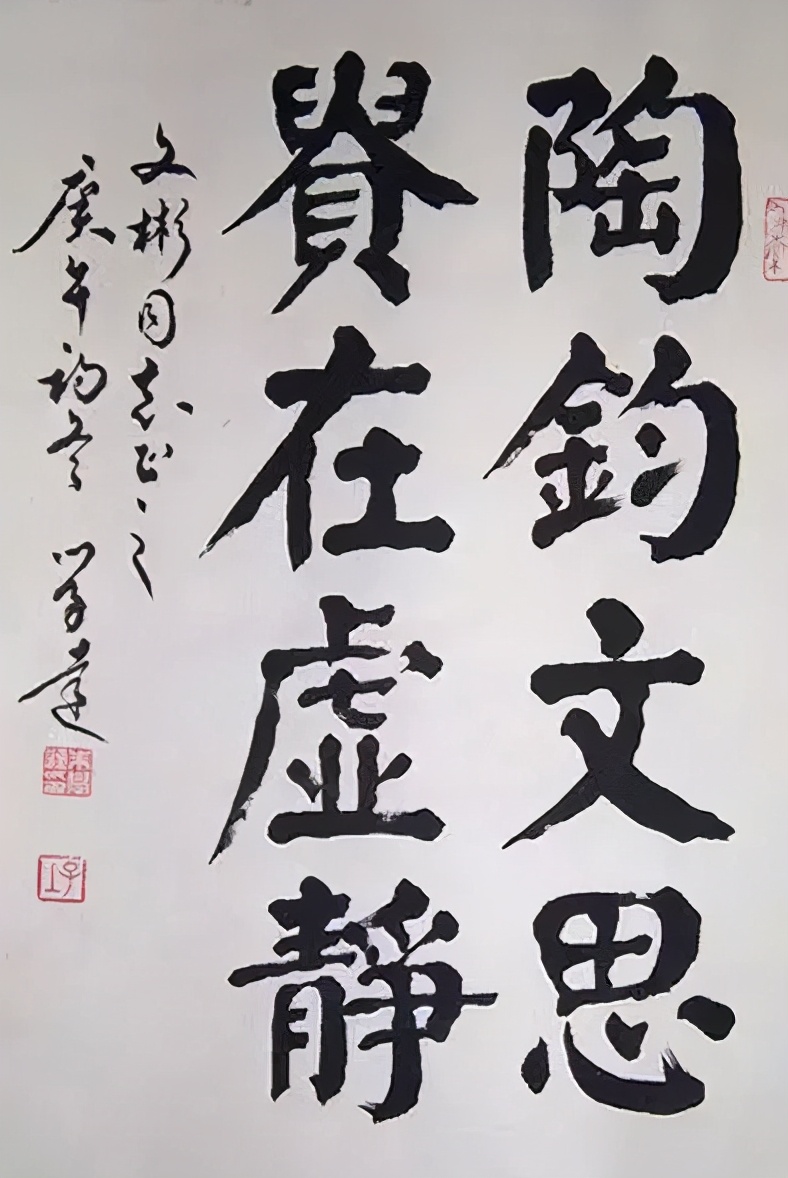 陶鈞文思
貴在虛靜
文彬同志正之
庚午初冬 学達